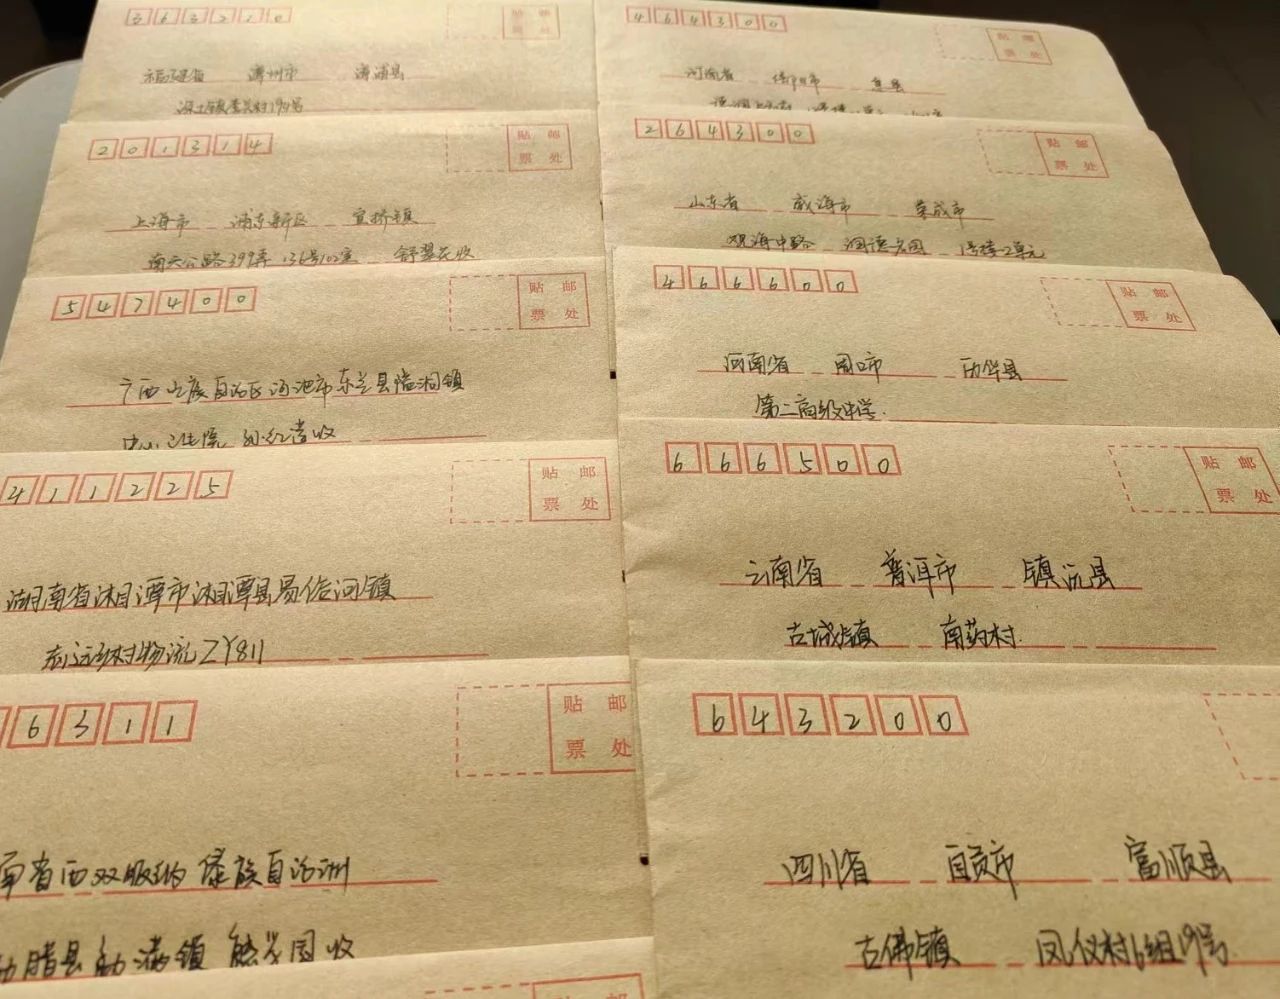 363210
贴 邮
票 处
福建省 漳州市 漳浦县
464300
贴 邮
票 处
河南省 信阳市 息县
201314
贴 邮
票 处
上海市 浦东新区 宣桥镇
南六公路399弄 136号102室 舒翠花收
264300
贴 邮
票 处
山东省 威海市 荣成市
观海中路 润德花园 1号楼2单元
547400
贴 邮
票 处
广西壮族自治区河池市东兰县隘洞镇
中心卫生院 收
466600
贴 邮
票 处
河南省 周口市 西华县
第二高级中学
411225
贴 邮
票 处
湖南省湘潭市湘潭县易俗河镇
物流ZY811
666500
贴 邮
票 处
云南省 普洱市 镇沅县
古城镇 南药村
6311
贴 邮
票 处
南省西双版纳傣族自治州
勐腊县勐满镇 收
643200
四川省 自贡市 富顺县
古佛镇 凤仪村6组19号
贴 邮